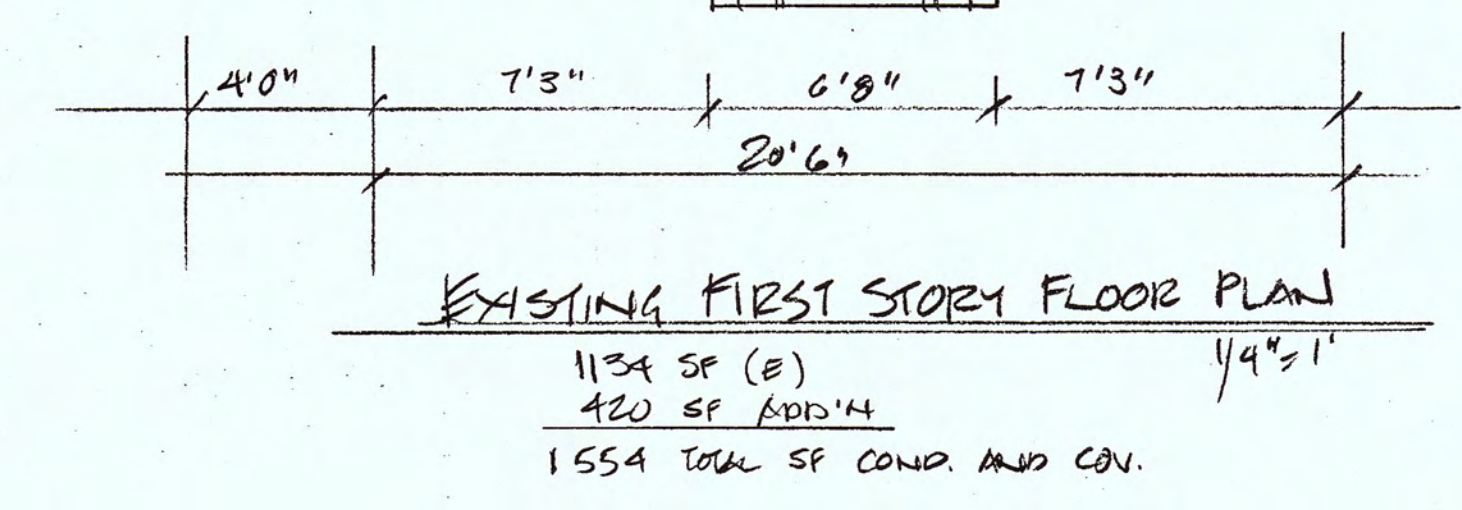 4'0" 7'3" 6'8" 7'3"
20'6"
EXISTING FIRST STORY FLOOR PLAN
1/4"=1'
1134 SF (E)
420 SF ADD'N
1554 TOTAL SF COND. AND COV.